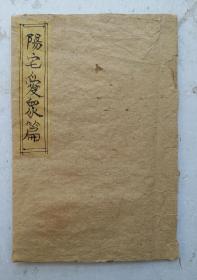 陽宅愛眾篇